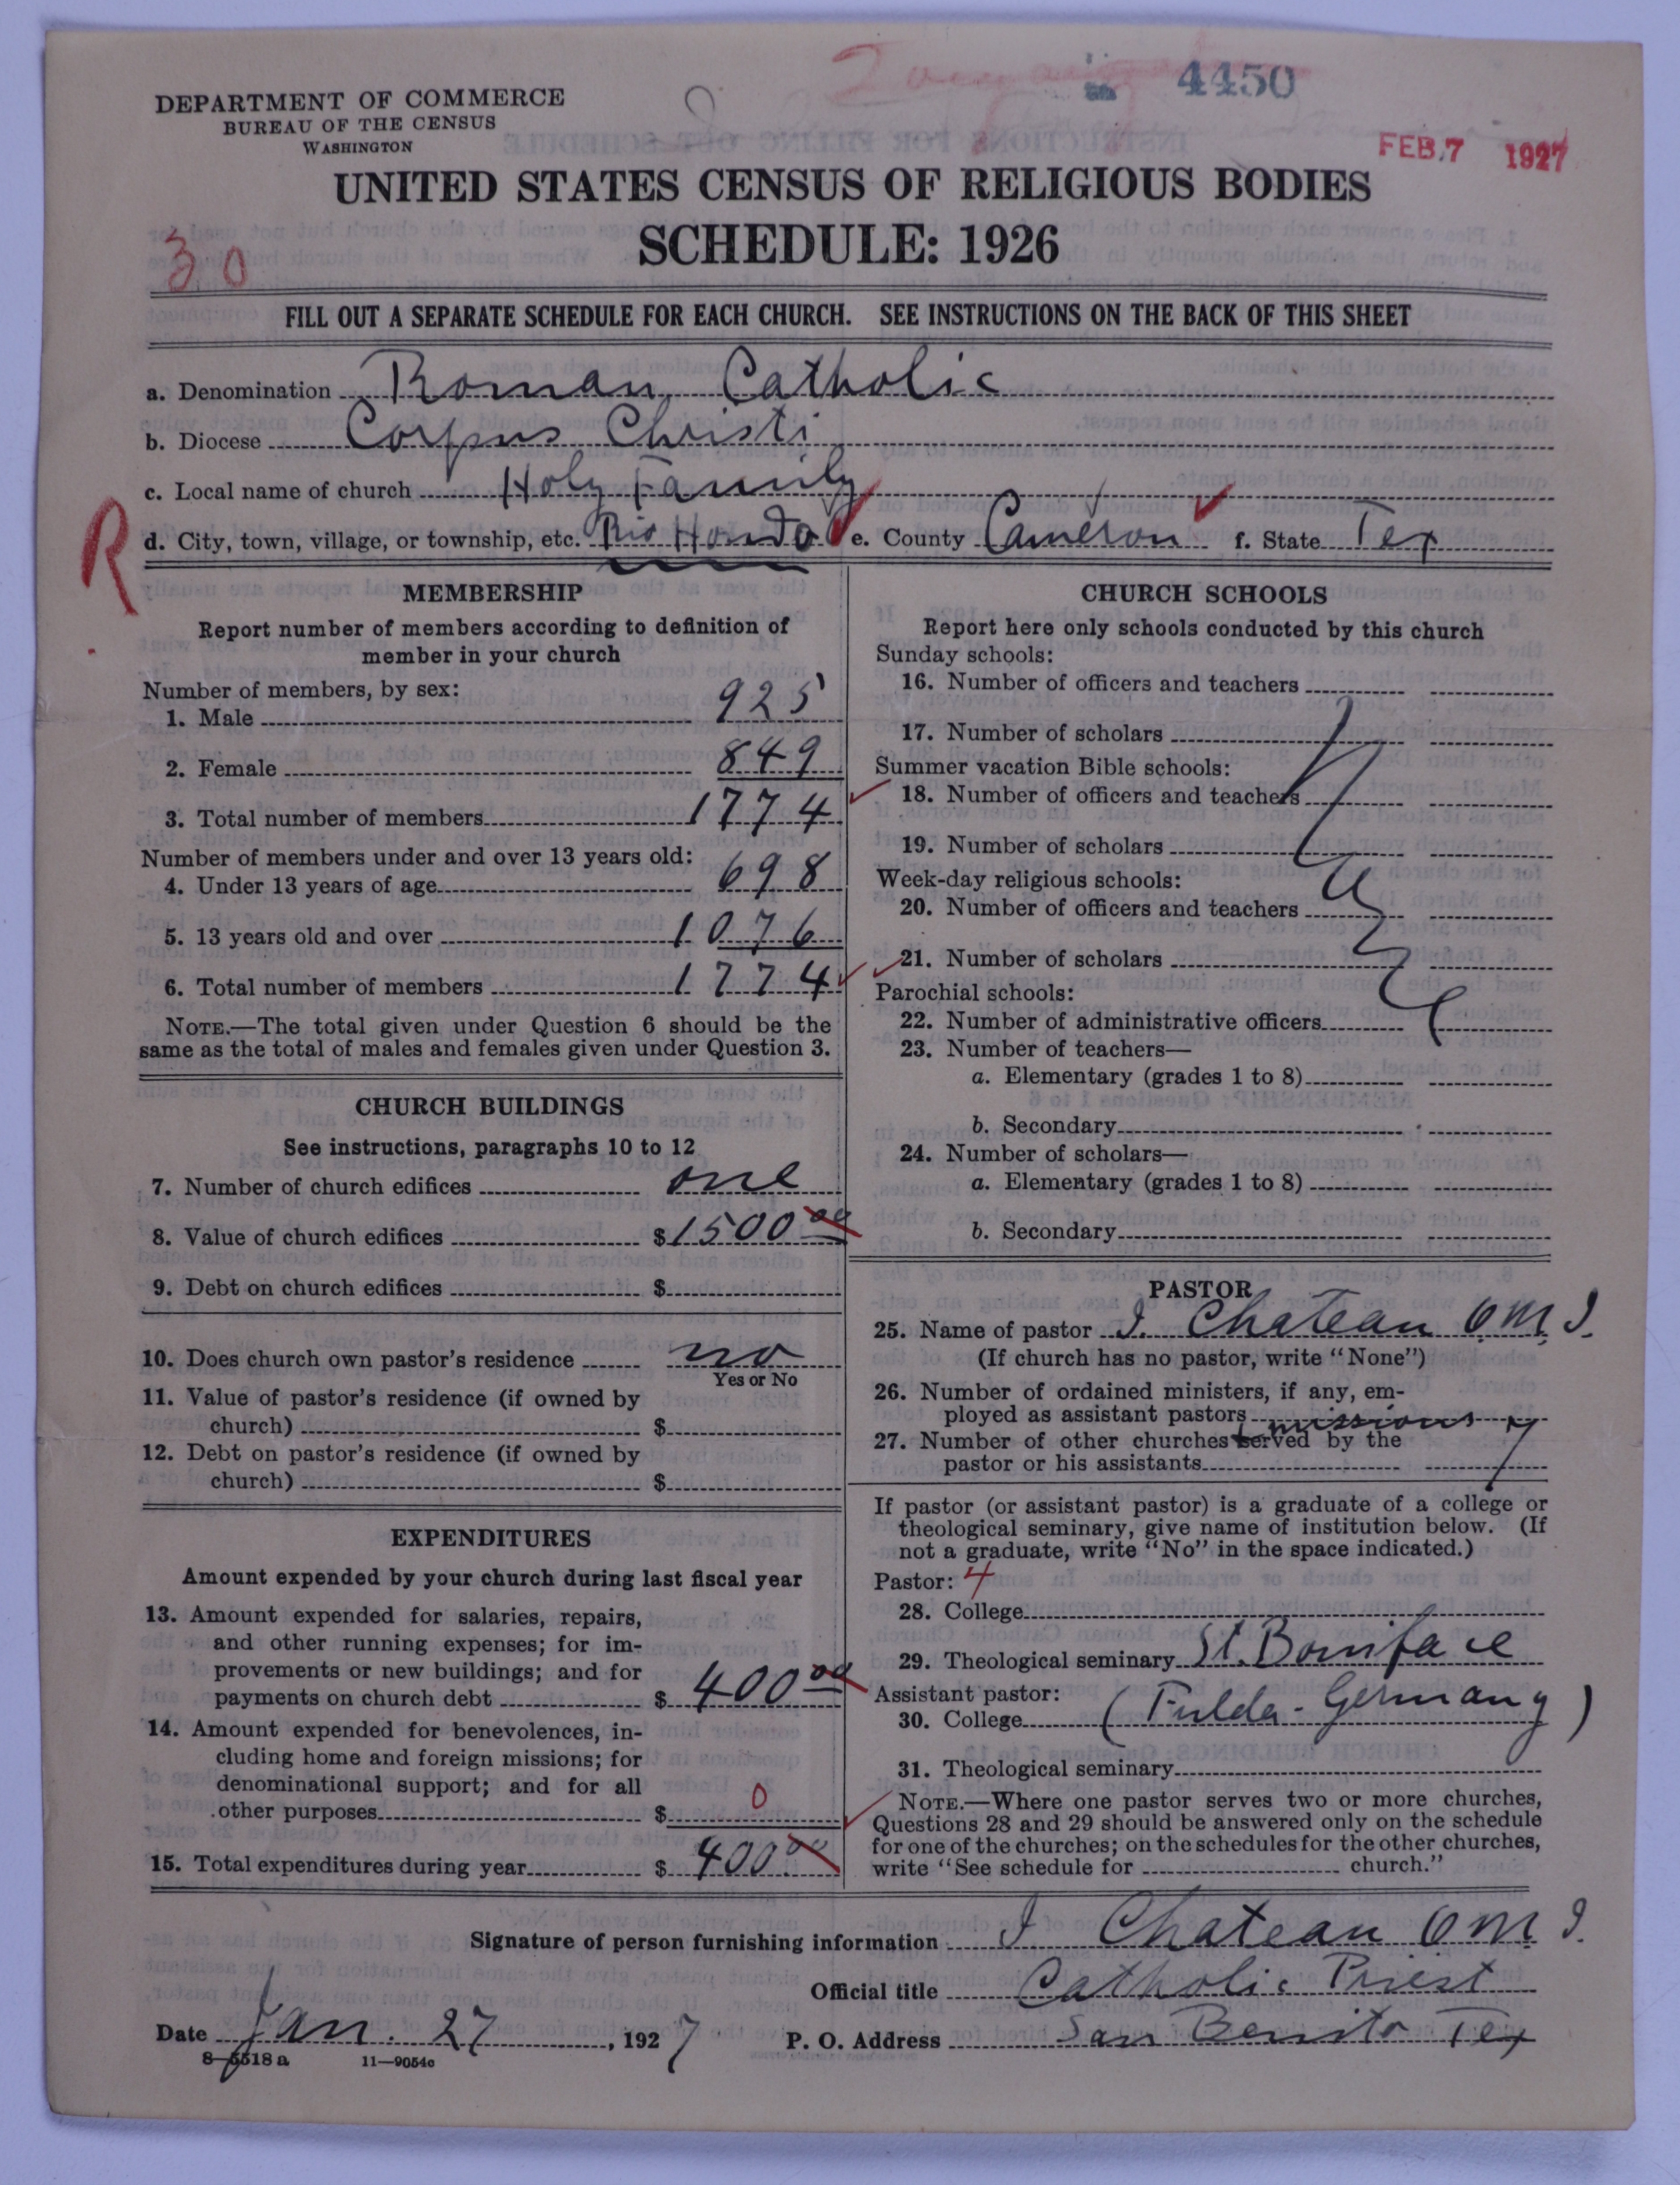 4450
DEPARTMENT OF COMMERCE
BUREAU OF THE CENSUS
WASHINGTON
FEB 7 1927
UNITED STATES CENSUS OF RELIGIOUS BODIES
SCHEDULE: 1926
30
FILL OUT A SEPARATE SCHEDULE FOR EACH CHURCH. SEE INSTRUCTIONS ON THE BACK OF THIS SHEET
a. Denomination Roman Catholic
b. Diocese Corpus Christi
c. Local name of church Holy Family
R
d. City, town, village, or township, etc. Rio Hondo e. County Cameron f. State Tex
MEMBERSHIP
Report number of members according to definition of
member in your church
Number of members, by sex:
1. Male 925
2. Female 849
3. Total number of members 1774
Number of members under and over 13 years old:
4. Under 13 years of age 698
5. 13 years old and over 1076
6. Total number of members 1774
NOTE.—The total given under Question 6 should be the
same as the total of males and females given under Question 3.
CHURCH BUILDINGS
See instructions, paragraphs 10 to 12
7. Number of church edifices one
8. Value of church edifices $1500 00
9. Debt on church edifices $
10. Does church own pastor's residence no
Yes or No
11. Value of pastor's residence (if owned by
church) $
12. Debt on pastor's residence (if owned by
church) $
EXPENDITURES
Amount expended by your church during last fiscal year
13. Amount expended for salaries, repairs,
and other running expenses; for im-
provements or new buildings; and for
payments on church debt $ 400 00
14. Amount expended for benevolences, in-
cluding home and foreign missions; for
denominational support; and for all
other purposes $ 0
15. Total expenditures during year $ 400 00
CHURCH SCHOOLS
Report here only schools conducted by this church
Sunday schools:
16. Number of officers and teachers
17. Number of scholars
Summer vacation Bible schools:
18. Number of officers and teachers
19. Number of scholars
Week-day religious schools:
20. Number of officers and teachers
21. Number of scholars
Parochial schools:
22. Number of administrative officers
23. Number of teachers—
a. Elementary (grades 1 to 8)
b. Secondary
24. Number of scholars—
a. Elementary (grades 1 to 8)
b. Secondary
PASTOR
25. Name of pastor J. Chateau O.M.I.
(If church has no pastor, write "None")
26. Number of ordained ministers, if any, em-
ployed as assistant pastors
missions
27. Number of other churches served by the
pastor or his assistants 7
If pastor (or assistant pastor) is a graduate of a college or
theological seminary, give name of institution below. (If
not a graduate, write "No" in the space indicated.)
Pastor: 4
28. College
29. Theological seminary St. Boniface
Assistant pastor:
30. College (Fulda - Germany)
31. Theological seminary
NOTE.—Where one pastor serves two or more churches,
Questions 28 and 29 should be answered only on the schedule
for one of the churches; on the schedules for the other churches,
write "See schedule for church."
Signature of person furnishing information J Chateau O M I.
Official title Catholic Priest
Date Jan. 27, 1927 P. O. Address San Benito Tex
8—5518 a 11—9054c